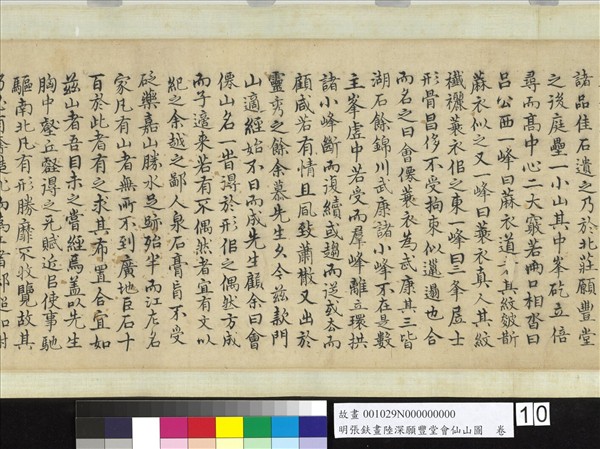 諸品佳石遺之乃於北莊願豐堂
之後庭壘一小山其中峯矻立倍
尋而高中心二大竅若兩口相沓曰
呂公西一峰曰蔴衣道其紋皴斮
蔴衣似之又一峰曰蓑衣真人其紋
襳襹蓑衣佀之東一峰曰三峯居士
形骨昌侈不受拘束似邋遢也合
而名之曰會僊蓑衣為武康其三皆
湖石餘錦川武康諸小峰不在是數
主峯虛中若受而羣峰離立環拱
諸小峰斷而復續或趨而送或而
顧咸若有情且風致蕭散又出於
靈秀之餘余慕先生久今茲款門
山適經始不日而成先生顧余曰會
僊山名一昔得於形佀之偶然方成
而子適來若有不偶然者宜有文以
紀之余越之鄙人泉石膏肓不受
砭藥嘉山勝水足跡殆半而江左名
家凡有山者無所不到廣地巨石十
百於此者有之求其布置合宜如
茲山者吾目未之嘗經焉蓋以先生
胸中壑丘得之天賦近臣使事馳
驅南北凡有形勝靡不收覽故其
故畫 001029N000000000
明張鈇畫陸深願豐堂會仙山圖 卷
10